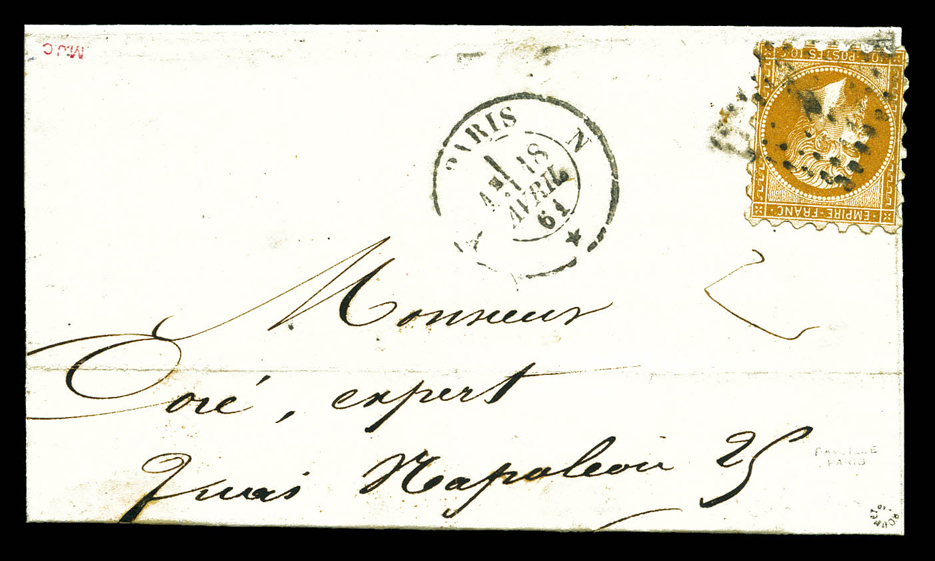 M.J.C
10 POSTES 10
EMPIRE FRANC
PARIS N
18
AVRIL
61
Monsieur
Doré, expert
Quai Napoléon 25
PARIS
ROUMET